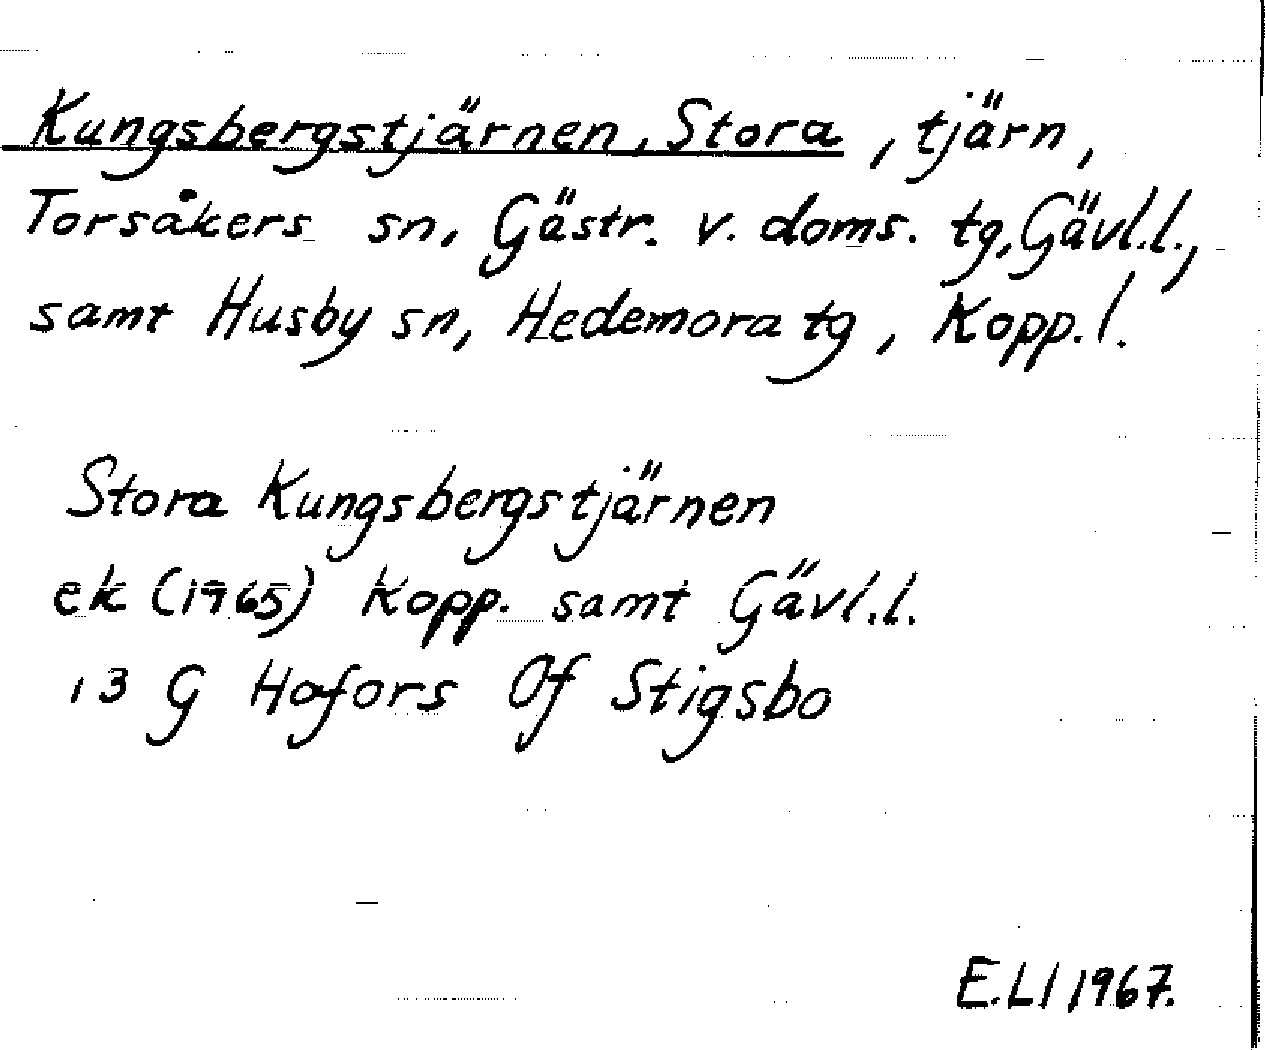 Kungsbergstjärnen, Stora, tjärn,
Torsåkers sn, Gästr. v. doms. tg, Gävl.l.,
samt Husby sn, Hedemora tg, Kopp.l.
Stora Kungsbergstjärnen
ek (1965) Kopp. samt Gävl.l.
13 G Hofors 0f Stigsbo
E.Ll 1967.